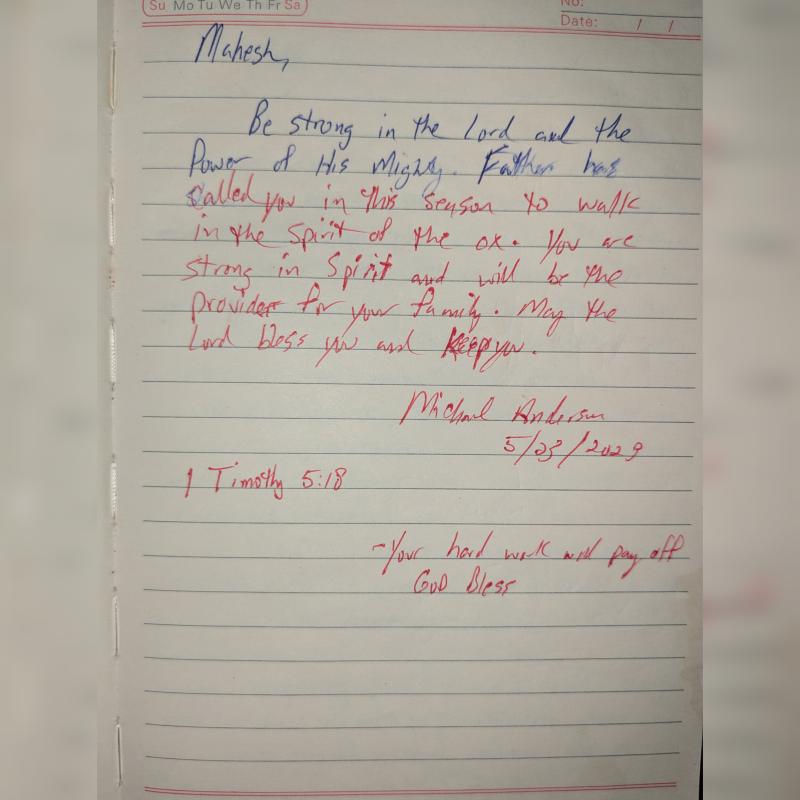 Su Mo Tu We Th Fr Sa
No:
Date: / /
Mahesh,
Be strong in the Lord and the
Power of His Mighty. Father has
called you in this season to walk
in the spirit of the ox. You are
strong in Spirit and will be the
provider for your family. May the
Lord bless you and keep you.
Michael Anderson
5/23/2023
1 Timothy 5:18
-Your hard work will pay off
GOD Bless